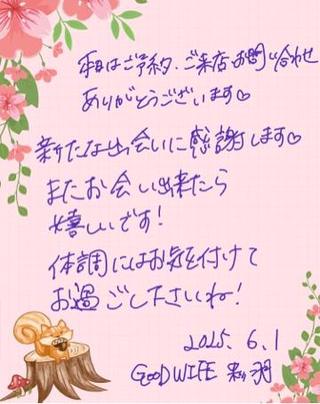 本日はご予約、ご来店お問い合わせ
ありがとうございます♡
新たな出会いに感謝します♡
またお会い出来たら
嬉しいです！
体調にはお気を付けて
お過ごしくださいね！
2025.6.1
GOOD WIFE